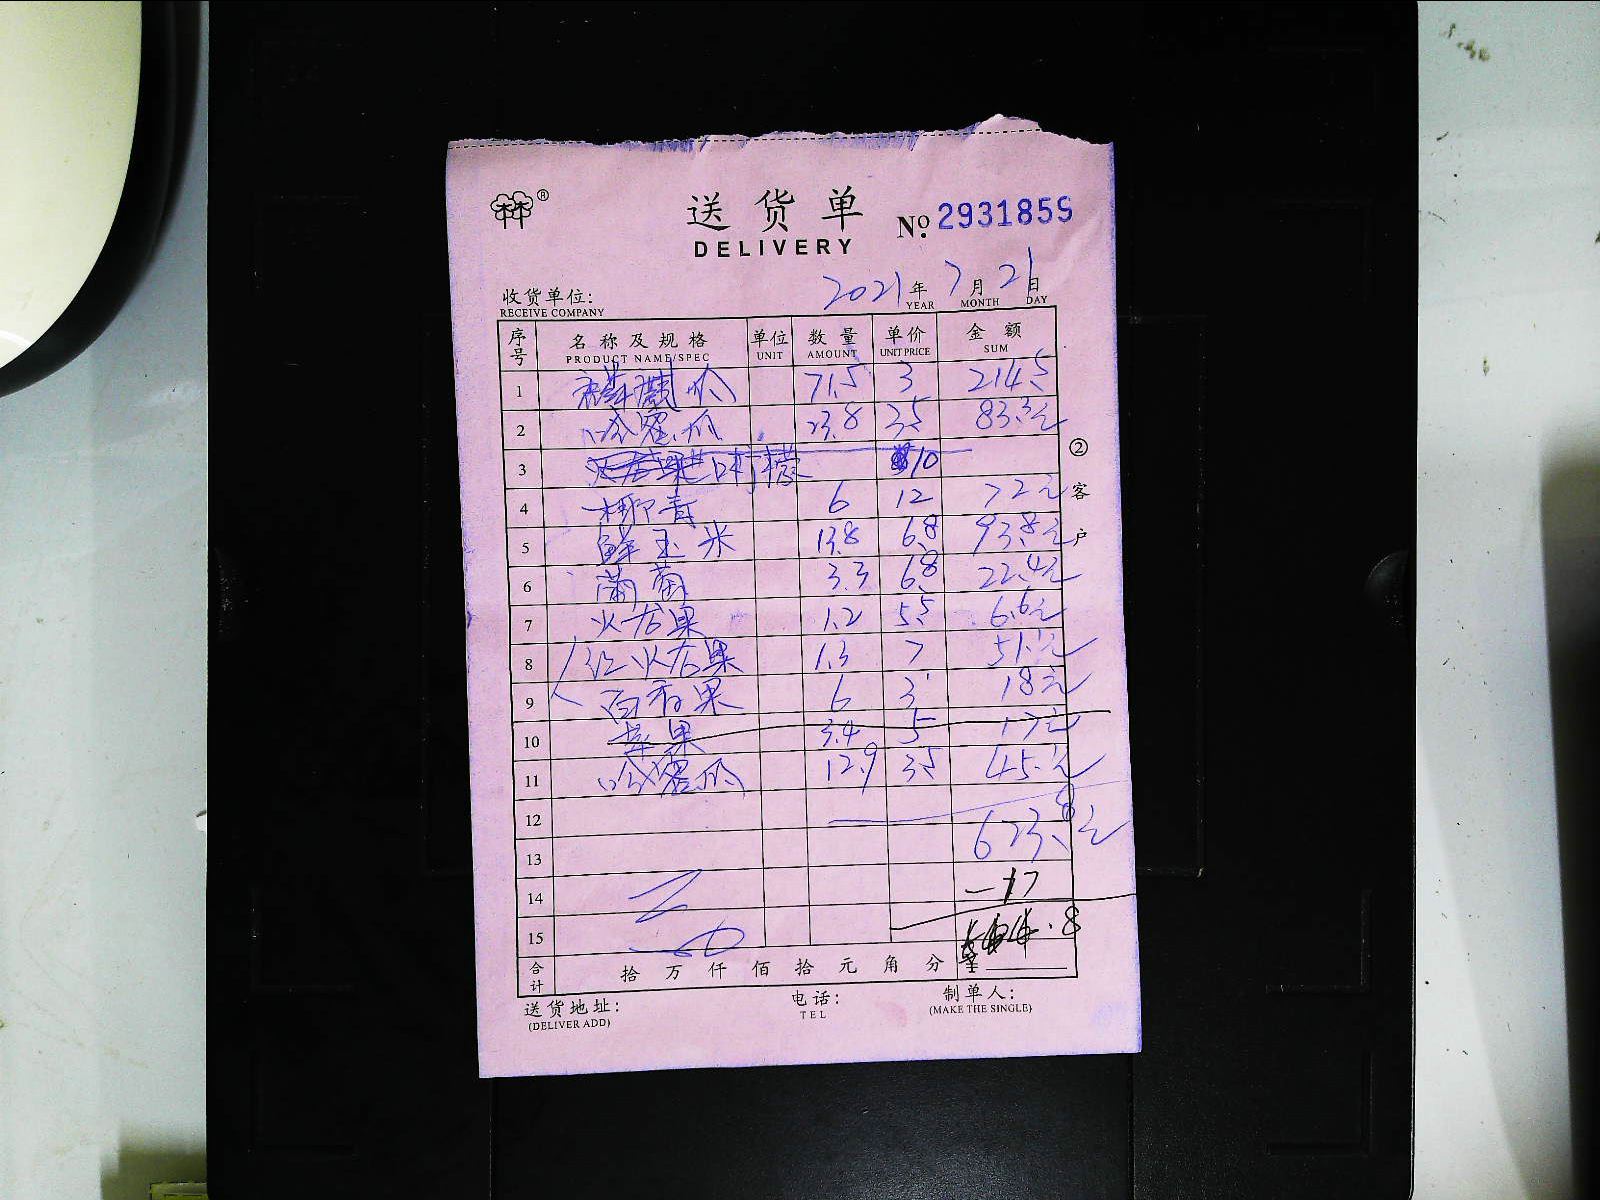 林®
送货单
DELIVERY
No. 2931859
2021年 7月 21日
YEAR MONTH DAY
收货单位:
RECEIVE COMPANY
序号 名称及规格 单位 数量 单价 金额
PRODUCT NAME/SPEC UNIT AMOUNT UNIT PRICE SUM
1 麒麟瓜 71.5 3 214.5
2 哈密瓜 23.8 3.5 83.3元
3 柠檬 10
4 椰青 6 12 72元
5 鲜玉米 13.8 6.8 93.8元
6 葡萄 3.3 6.8 22.4元
7 火龙果 1.2 5.5 6.6元
8 红火龙果 1.3 7 51.1元
9 百香果 6 3 18元
10 苹果 3.4 5 17元
11 哈密瓜 12.9 3.5 45.1元
12
13 623.8元
14 -17
15
合计 拾 万 仟 佰 拾 元 角 分 ¥
送货地址: 电话: 制单人:
(DELIVER ADD) TEL (MAKE THE SINGLE)
②客户